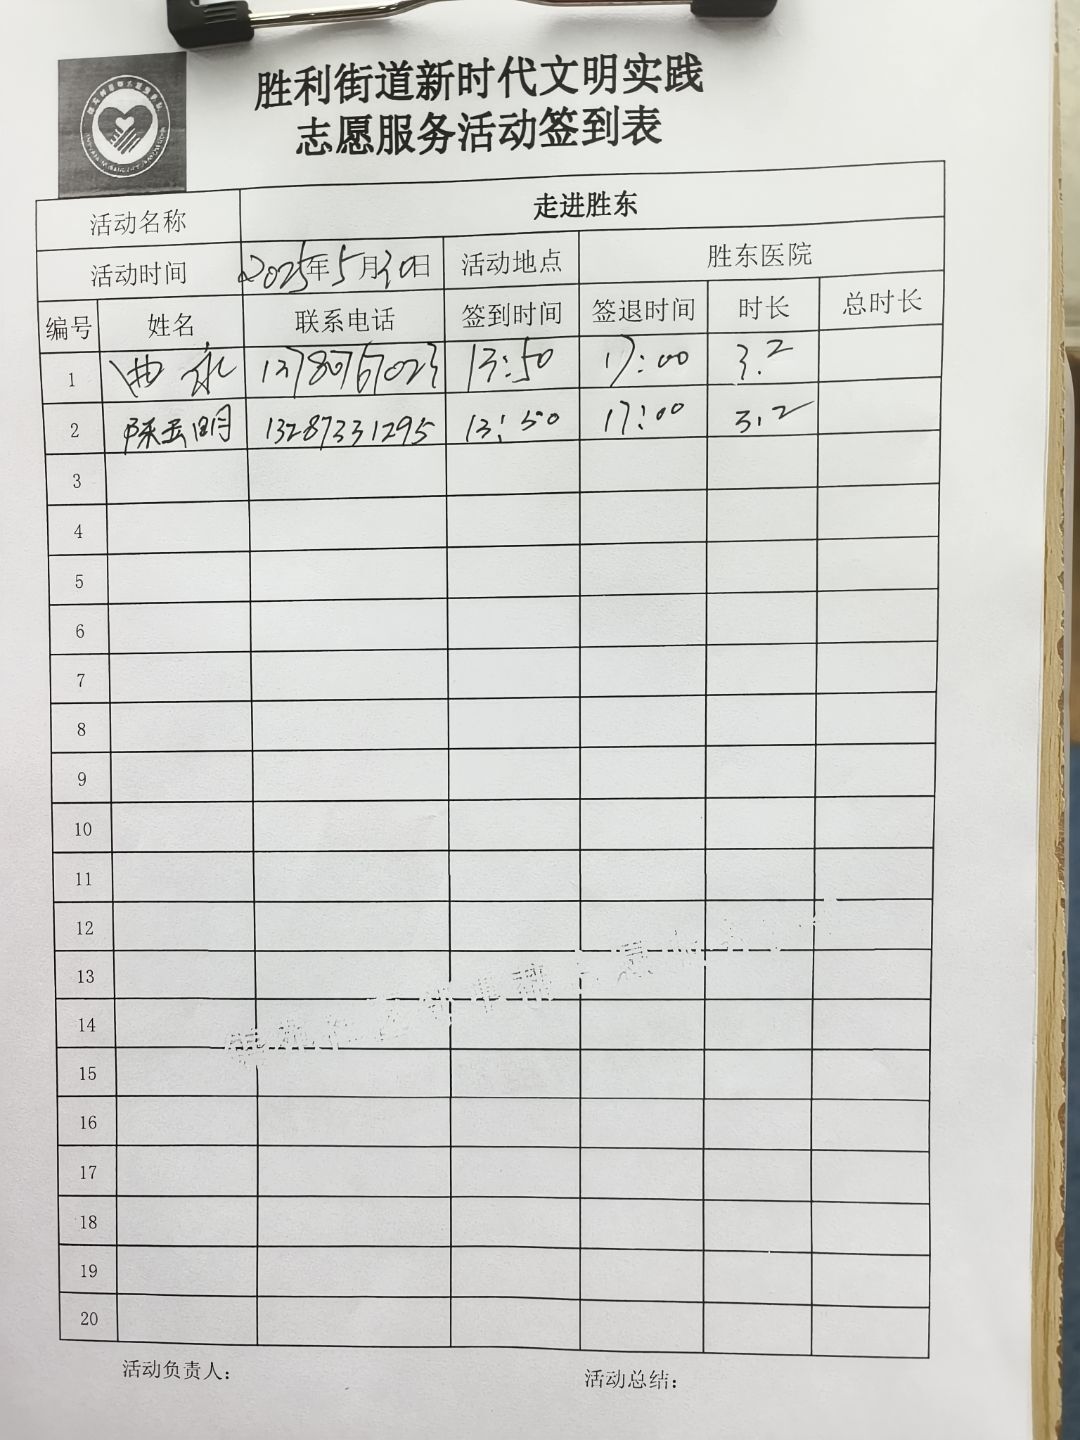 胜利街道新时代文明实践
志愿服务活动签到表
活动名称 走进胜东
活动时间 2025年5月30日 活动地点 胜东医院
编号 姓名 联系电话 签到时间 签退时间 时长 总时长
1 曲永 13780767023 13:50 17:00 3.2
2 陈云明 13287331295 13:50 17:00 3.2
3
4
5
6
7
8
9
10
11
12
13
14
15
16
17
18
19
20
活动负责人： 活动总结：